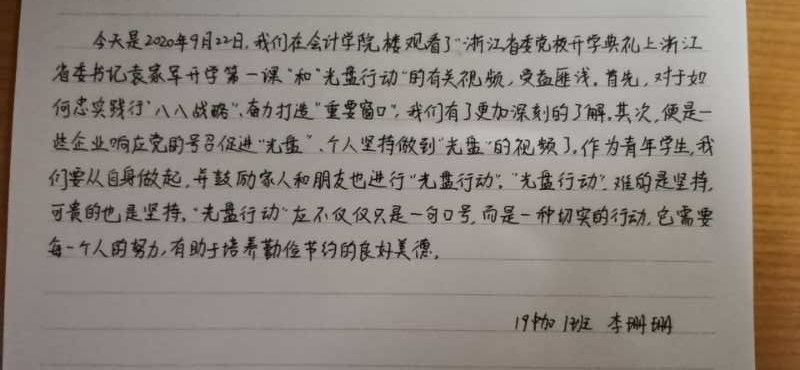 今天是2020年9月22日，我们在会计学院楼观看了“浙江省委党校开学典礼上浙江
省委书记袁家军开学第一课”和“光盘行动”的有关视频，受益匪浅。首先，对于如
何忠实践行“八八战略”、奋力打造“重要窗口”，我们有了更加深刻的了解。其次，便是一
些企业响应党的号召促进“光盘”、个人坚持做到“光盘”的视频了。作为青年学生，我
们要从自身做起，并鼓励家人和朋友也进行“光盘行动”。“光盘行动”，难的是坚持，
可贵的也是坚持。“光盘行动”在不仅仅只是一句口号，而是一种切实的行动，它需要
每一个人的努力，有助于培养勤俭节约的良好美德。
19中加 1班 李珊珊